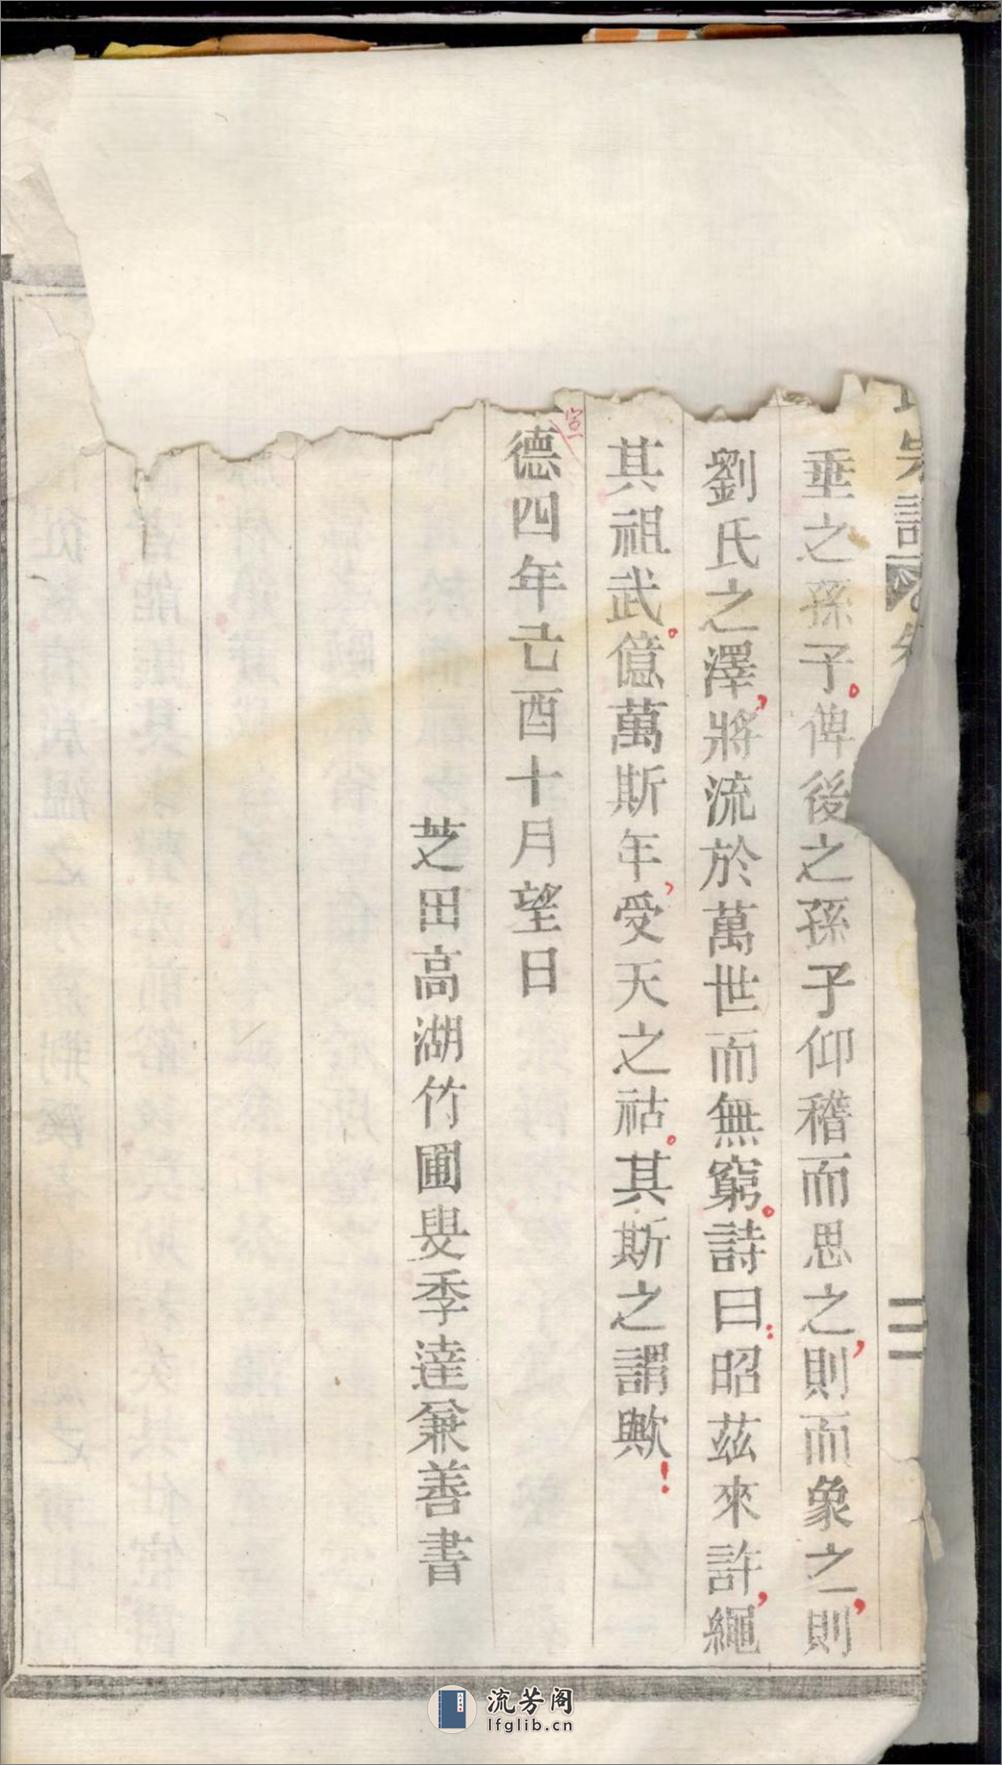 垂之孫子。俾後之孫子仰稽而思之,則而象之,則
劉氏之澤,將流於萬世而無窮。詩曰:昭茲來許,繩
其祖武。億萬斯年,受天之祜。其斯之謂歟!
宣
德四年己酉十月望日
芝田高湖竹圃叟季達兼善書
宗譜
二
流芳阁
lfglib.cn